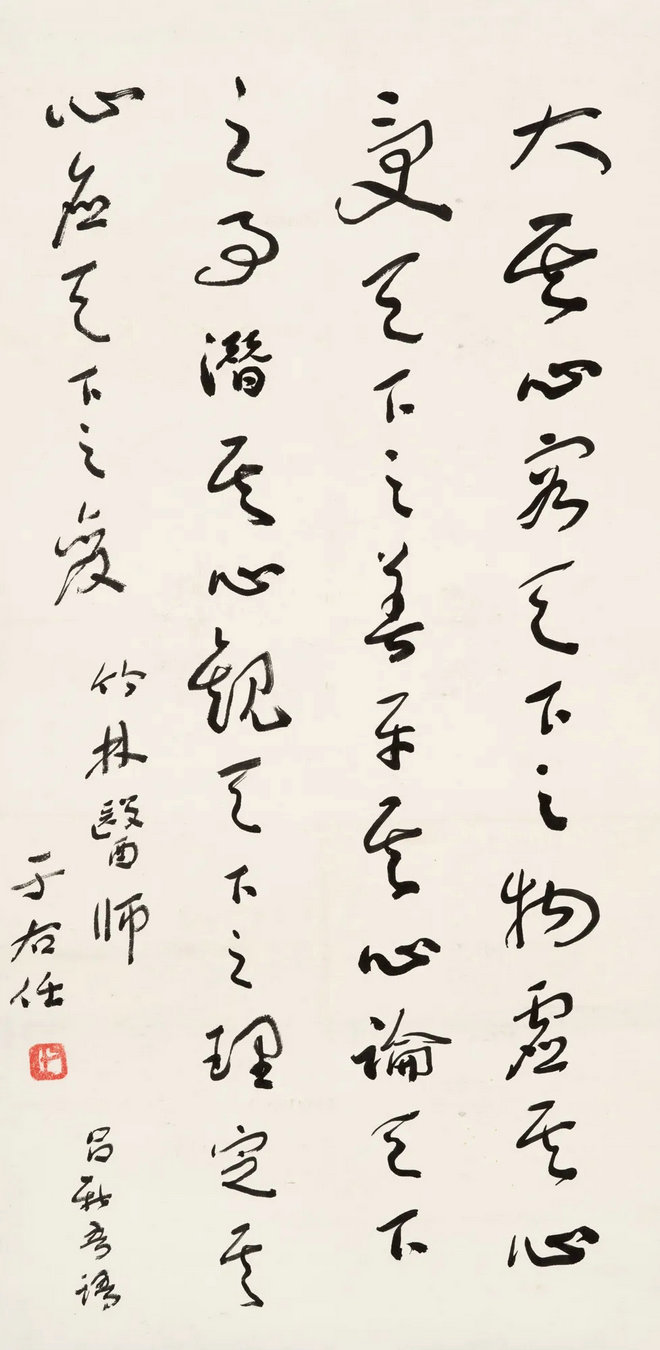 大其心容天下之物虛其心
受天下之善平其心論天下
之事潛其心觀天下之理定其
心應天下之變
竹林醫師
呂新吾語
于右任